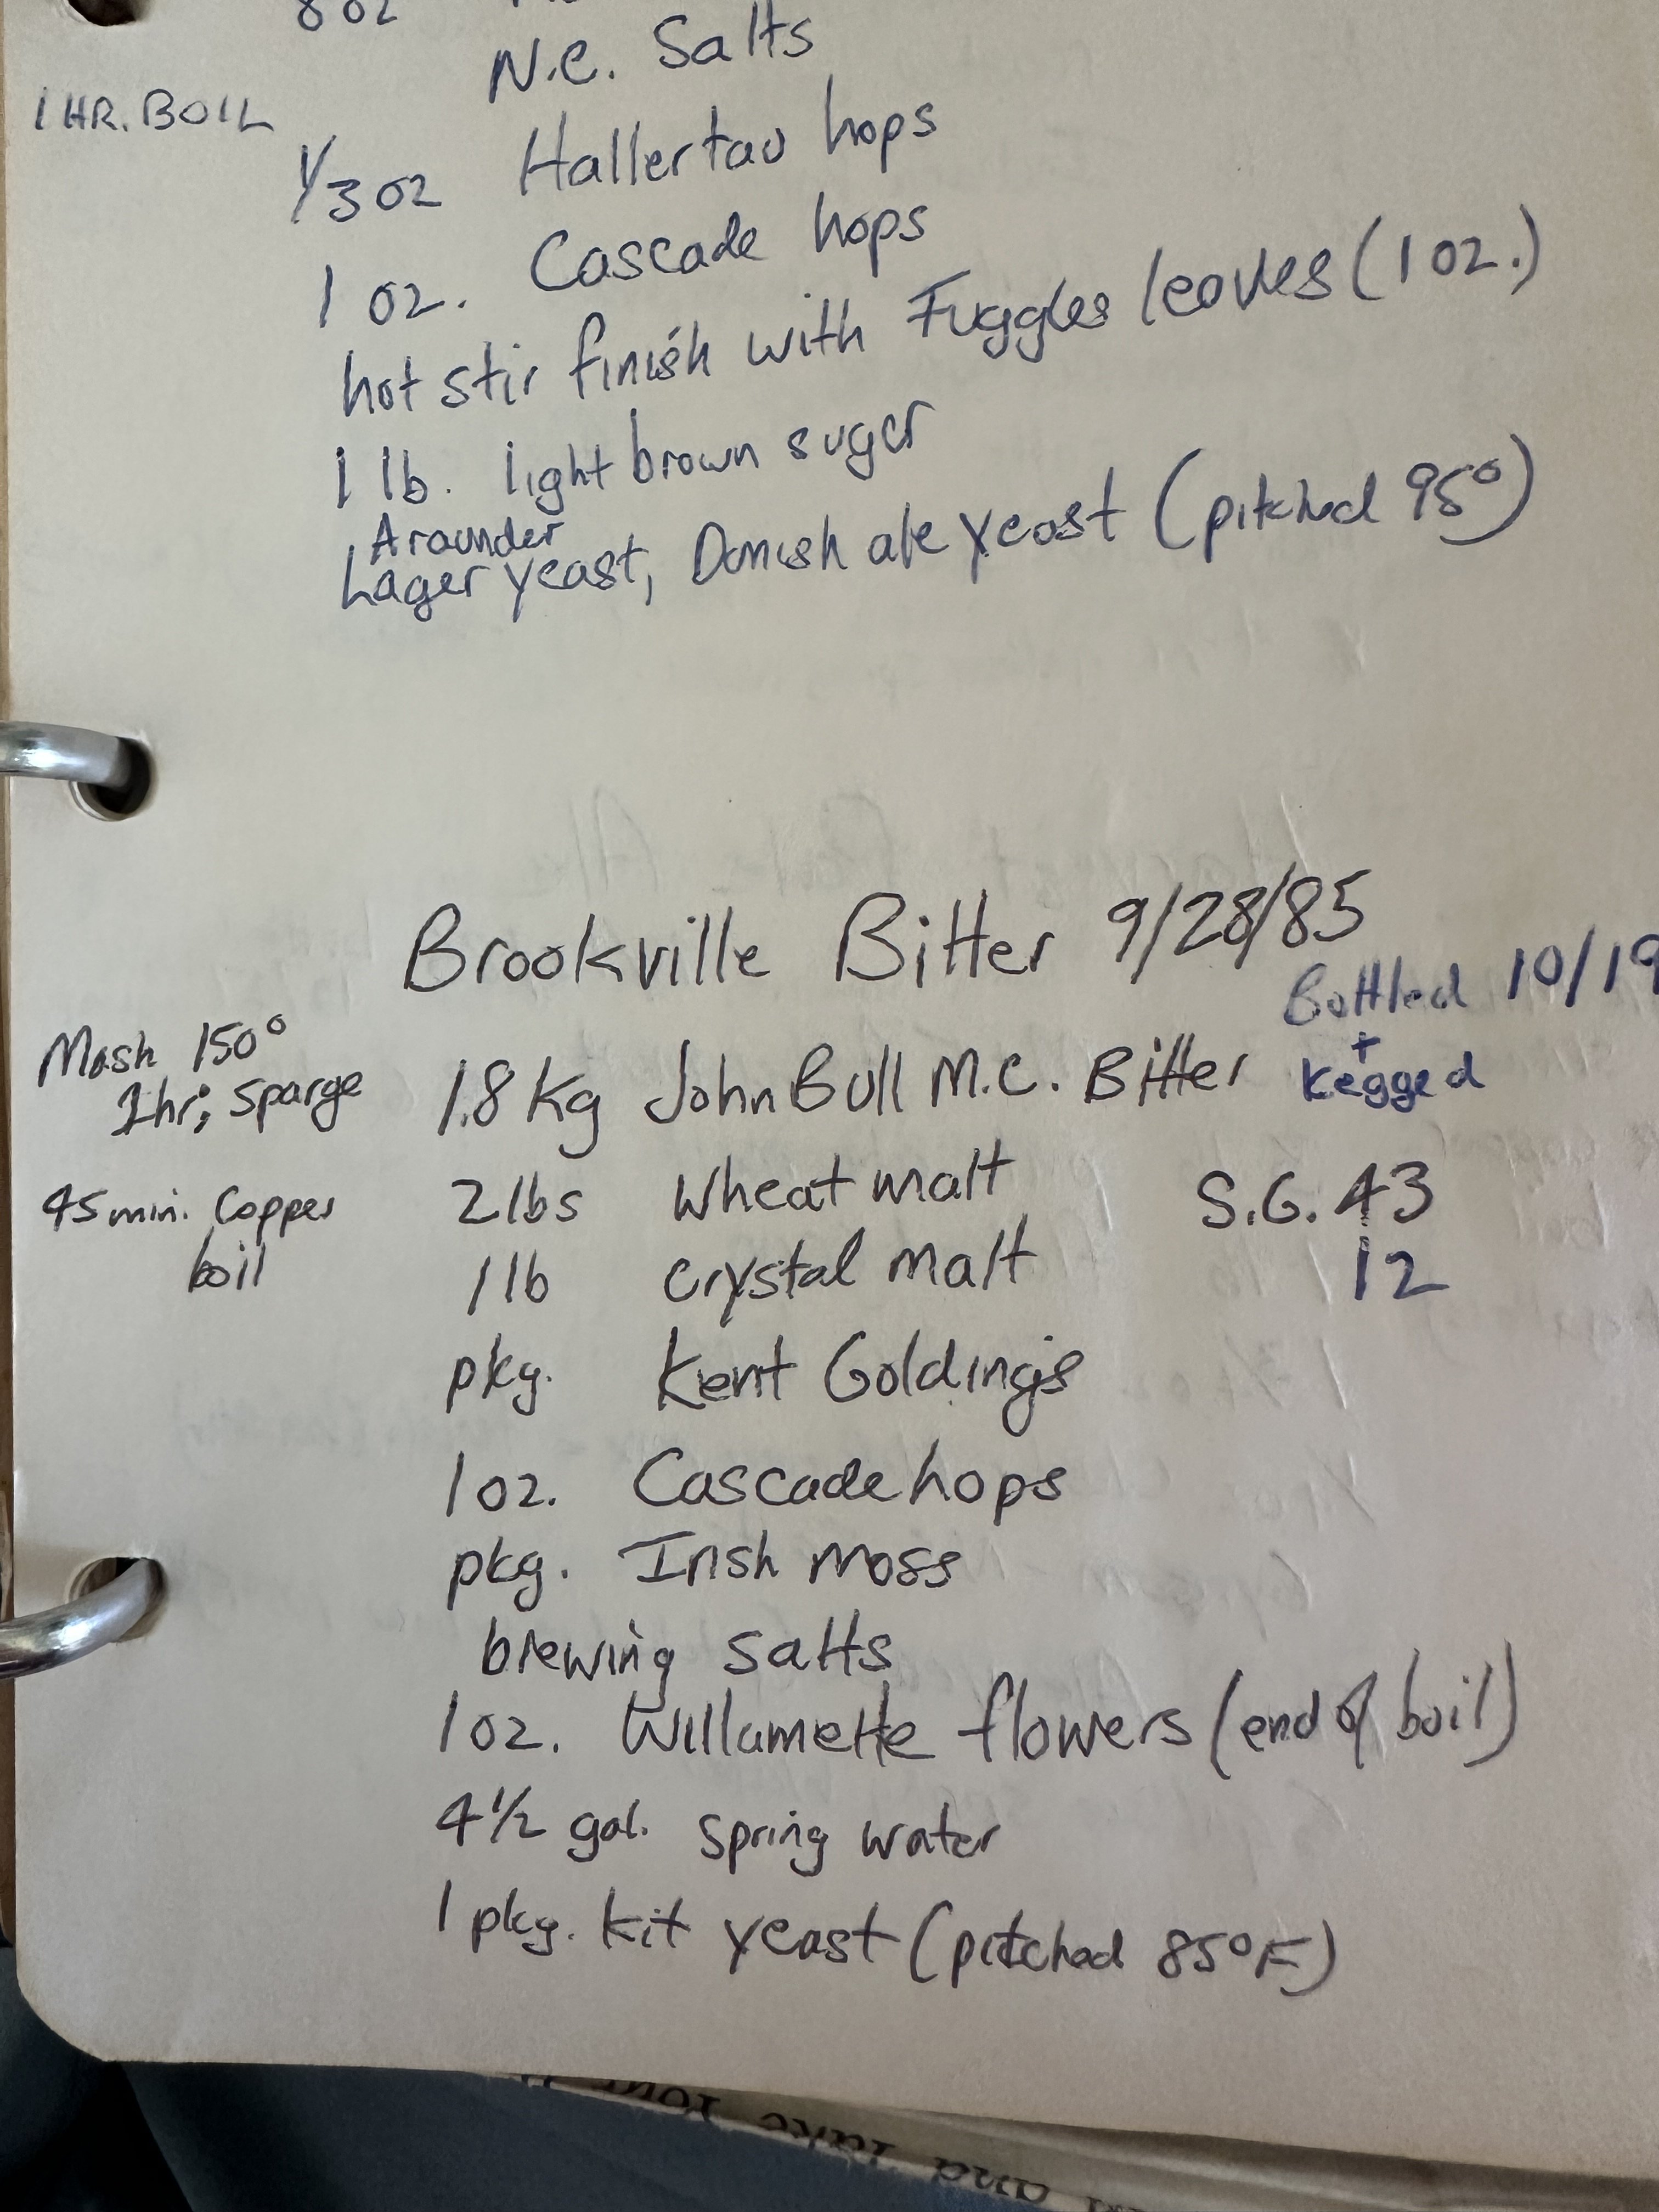 8 oz
N.C. Salts
1 HR. BOIL
1/3 oz Hallertau hops
1 oz. Cascade hops
hot stir finish with Fuggles leaves (1 oz.)
1 lb. light brown sugar
Arounder
Lager yeast, Danish ale yeast (pitched 95°)
Brookville Bitter 9/28/85
Bottled 10/19
+
kegged
Mash 150°
1hr; sparge
1.8 Kg John Bull M.C. Bitter
45 min. Copper
boil
2 lbs wheat malt
S.G. 43
1 lb crystal malt
12
pkg. Kent Goldings
1 oz. Cascade hops
pkg. Irish moss
brewing salts
1 oz. Willamette flowers (end of boil)
4 1/2 gal. spring water
1 pkg. kit yeast (pitched 85°F)
and take